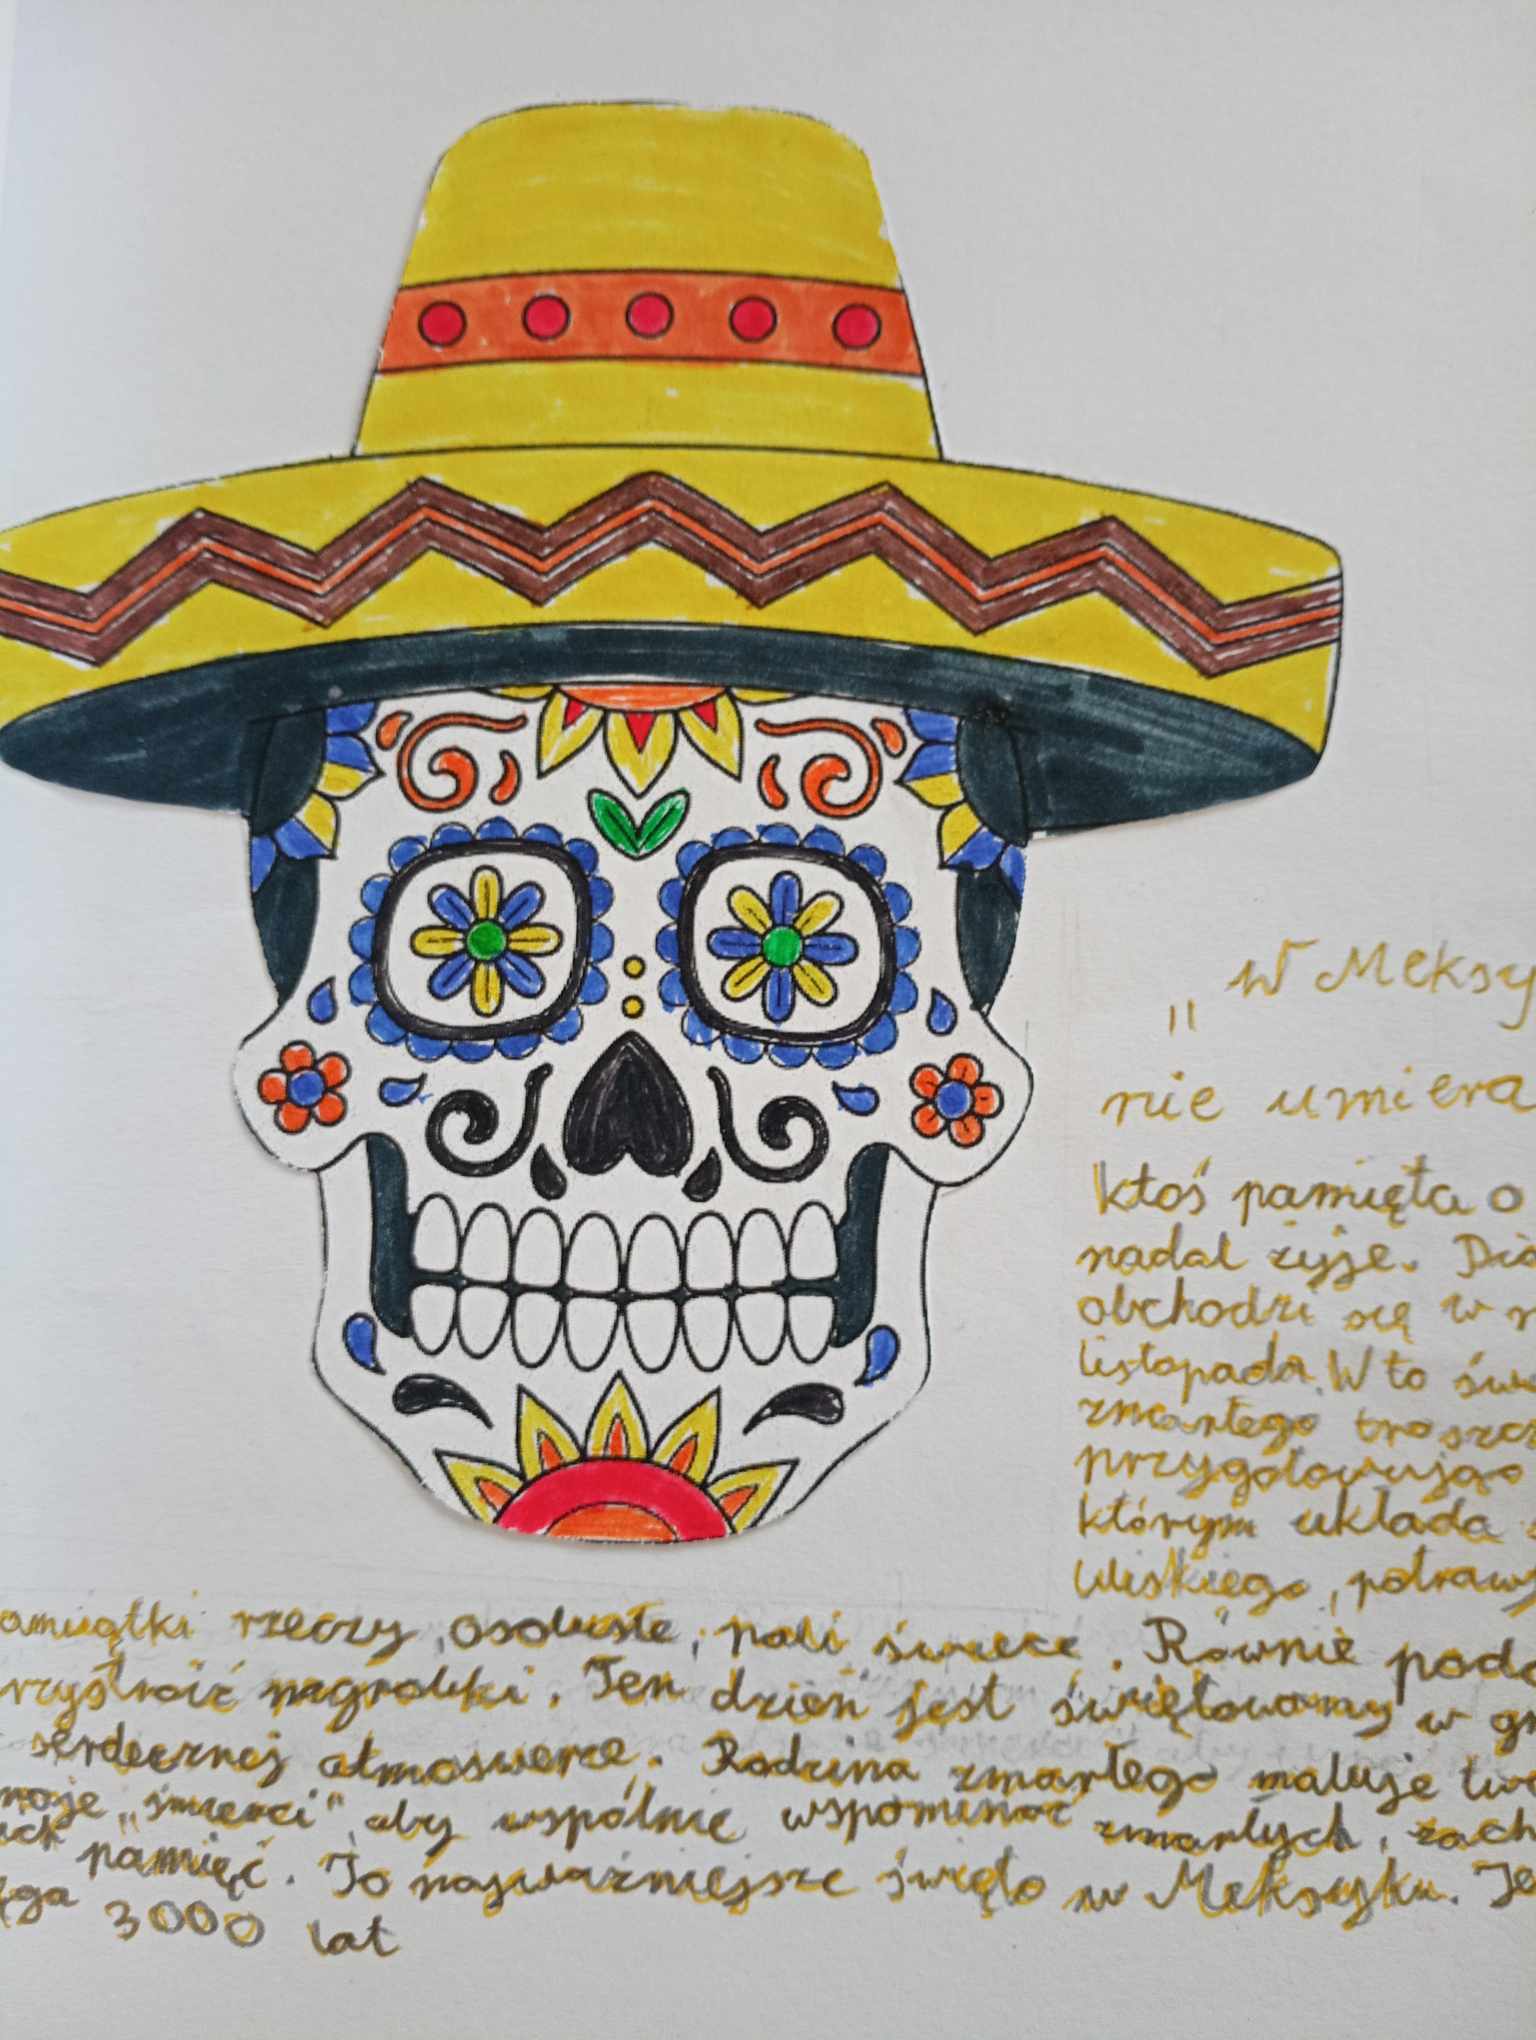 „ W Meksy
nie umiera
ktoś pamięta o
nadal żyje. Dia
obchodzi się w n
listopada. W to świ
zmarłego troszcz
przygotowując
którym układa
bliskiego, potrawy
amiątki rzeczy, osobiste, pali świece. Równie podo
rzystroić nagrobki. Ten dzień jest świętowany w gr
serdecznej atmoswerze. Rodzina zmarłego maluje twa
moje „śmierci" aby wspólnie wspominać zmarłych, zach
ich pamięć. To najważniejsze święto w Meksyku. Je
ęga 3000 lat